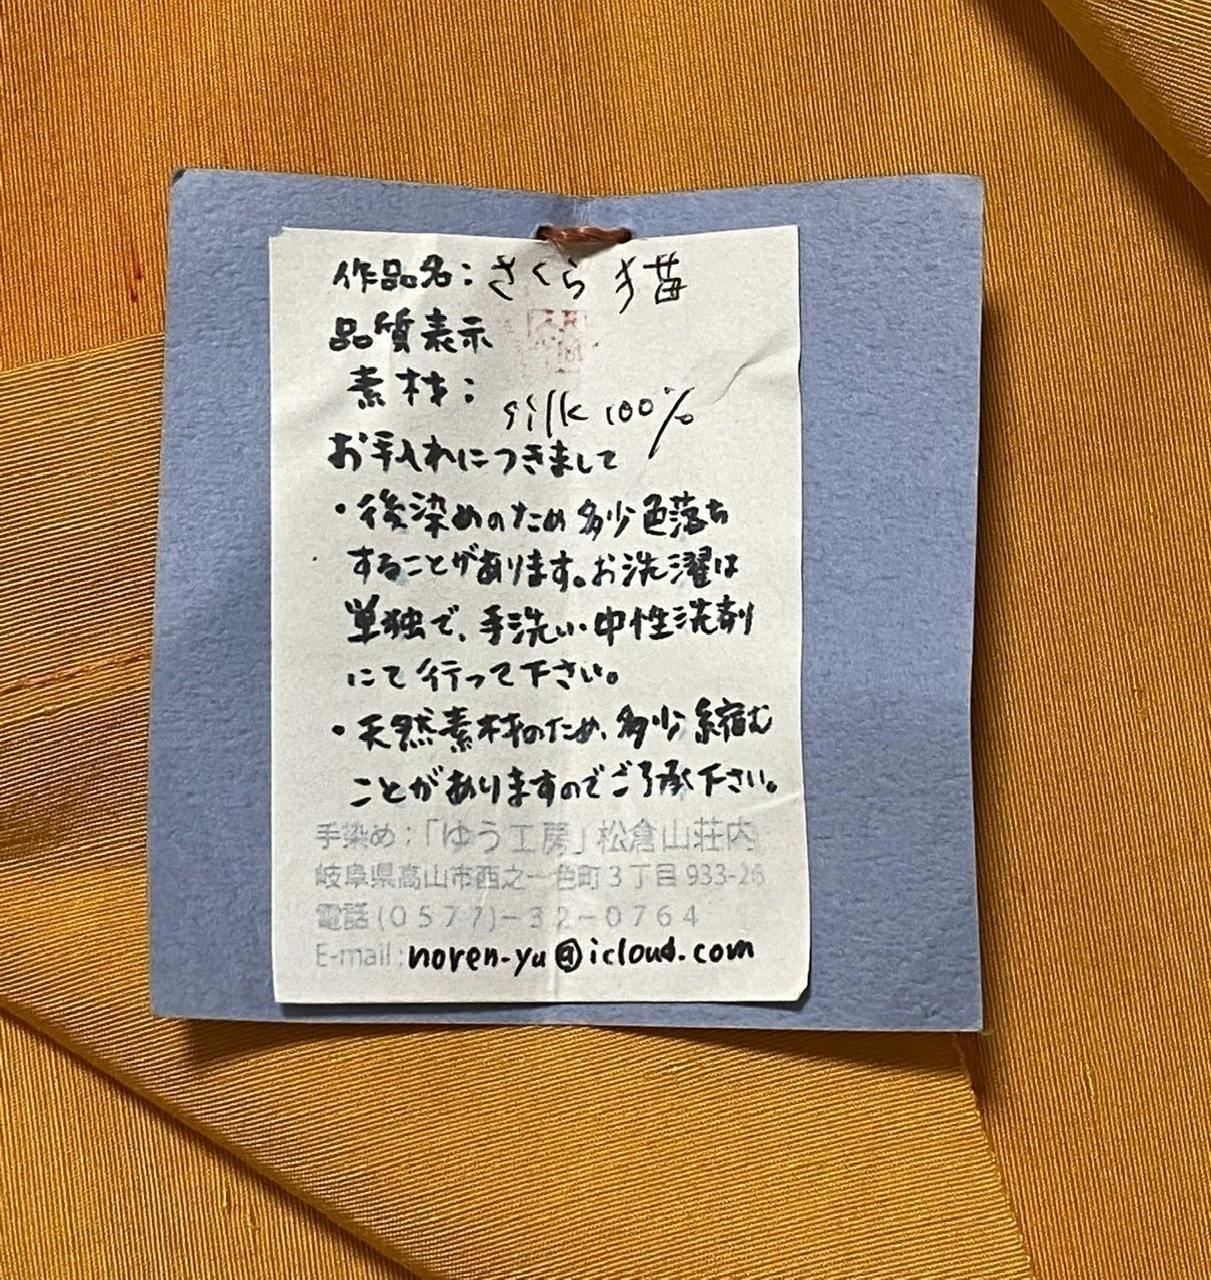 作品名：さくら猫
品質表示
素材：silk 100%
お手入れにつきまして
・後染めのため多少色落ち
することがあります。お洗濯は
単独で、手洗い・中性洗剤
にて行って下さい。
・天然素材のため、多少縮む
ことがありますのでご了承下さい。
手染め：「ゆう工房」松倉山荘内
岐阜県高山市西之一色町3丁目933-26
電話(0577)-32-0764
E-mail:noren-yu@icloud.com